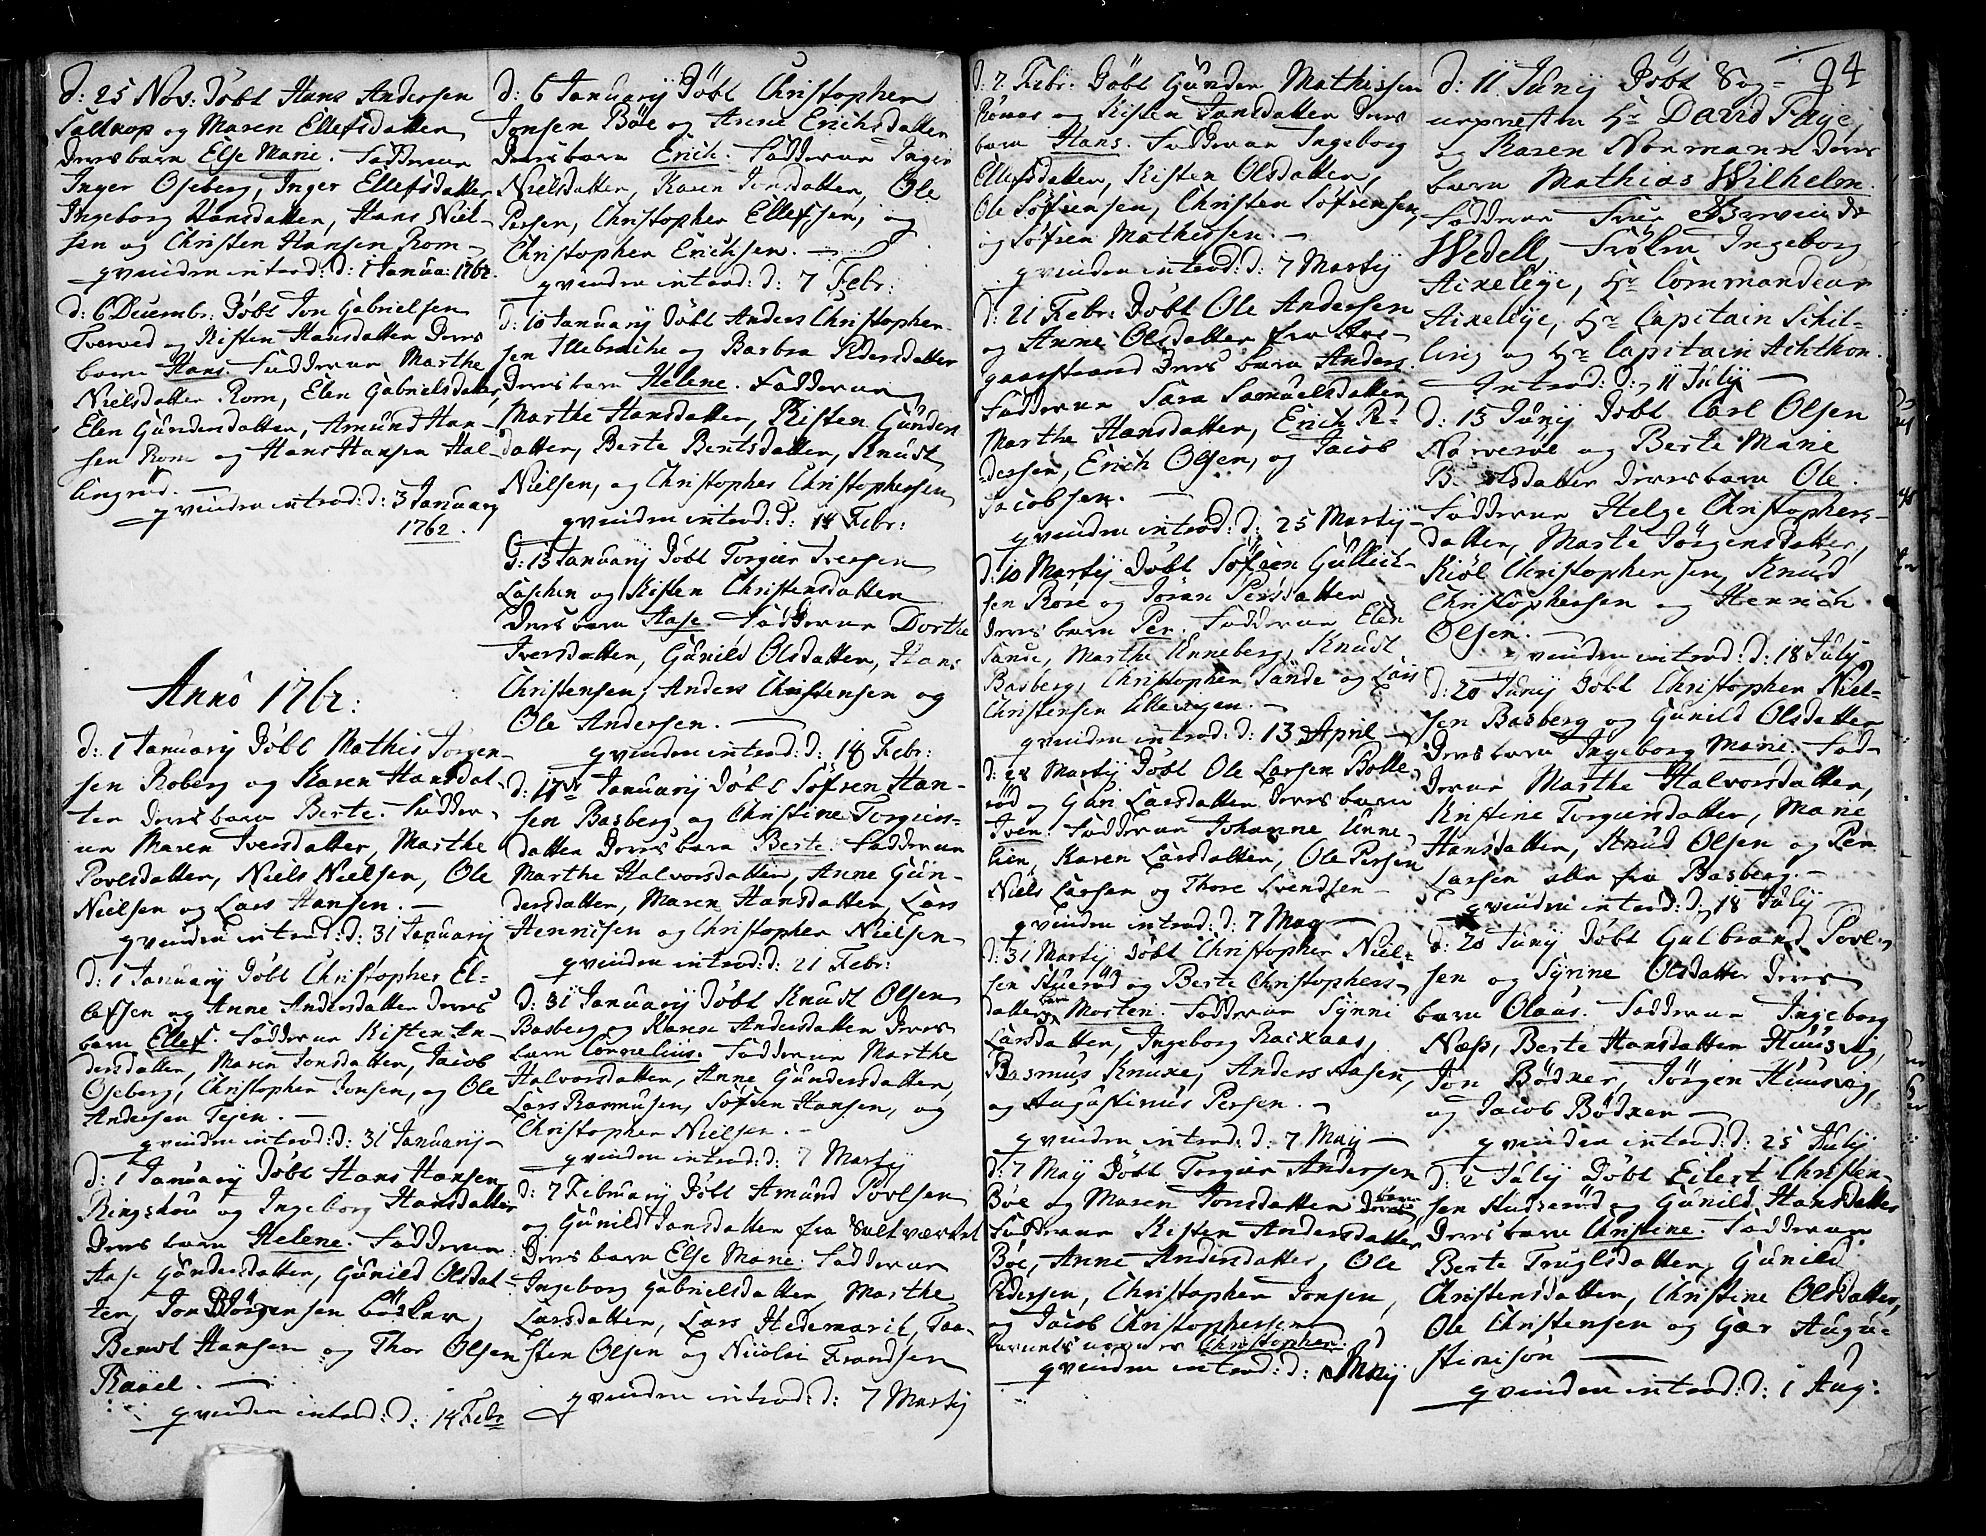 d: 25 Nov: Döbt Hans Andersen
Saltkop og Maren Ellefsdatter
Deres barn Else Marie. Fadderne
Inger Oseberg, Inger Ellefsdatter
Ingeborg Hansdatter, Hans Niel-
sen og Christen Hansen Rom-
qvinden introd: d: 1 Janua: 1762.
d: 6 Decembr: Döbt Jon Gabrielsen
Tverved og Kisten Hansdatter Deres
barn Hans. Fadderne Marthe
Nielsdatter Rom, Elen Gabrielsdatter,
Elen Gundersdatter, Amund Han-
sen Rom og Hans Hansen Hal-
lingrud.
qvinden introd: d: 3 January
1762.
Anno 1762:
d: 1 January Döbt Mathis Jörgen-
sen Roberg og Karen Hansdat-
ter Deres barn Berte. Fadder-
ne Maren Iversdatter, Marthe
Povlsdatter, Niels Nielsen, Ole
Nielsen og Lars Hansen. -
qvinden introd: d: 31 January
d: 1 January Döbt Christopher El-
lefsen og Anne Andersdatter Deres
barn Ellef. Fadderne Kisten An-
dersdatter, Maren Jonsdatter, Jacob
Oseberg, Christopher Jonsen, og Ole
Andersen Tejen. -
qvinden introd: d: 31 January-
d: 1 January Döbt Hans Hansen
Ringshou og Ingeborg Hansdatter
Deres barn Helene. Fadderne
Aase Gundersdatter, Gunild Olsdat-
ter, Jon Jörgensen
Bernt Hansen og Thor Olsen
Ravel. -
qvinden introd: d: 14 Febr
d: 6 January Döbt Christopher
Jonsen Böe og Anne Erichsdatter
Deres barn Erich. Fadderne Inger
Nielsdatter, Karen Jonsdatter, Ole
Persen, Christopher Ellefsen, og
Christopher Erichsen. -
qvinden introd: d: 7 Febr:
d: 10 January Döbt Anders Christopher-
sen Illebrekke og Barbra Pedersdatter
Deres barn Helene. Fadderne
Marthe Hansdatter, Kisten Gunders
datter, Berte Berntsdatter, Knudt
Nielsen, og Christopher Christophersen
qvinden introd: d: 14 Febr:
d: 13 January Döbt Torgier Iversen
Laschen og Kisten Christensdatter
Deres barn Aase. Fadderne Dorthe
Iversdatter, Gunild Olsdatter, Hans
Christensen, Anders Christensen og
Ole Andersen. -
qvinden introd: d: 18 Febr:
d: 17de January Döbt Söfren Han-
sen Basberg og Christine Torgiers-
datter Deres barn Berte. Fadderne
Marthe Halvorsdatter, Anne Gun-
dersdatter, Maren Hansdatter, Lars
Hennisen og Christopher Nielsen-
qvinden introd: d: 21 Febr:
d: 31 January Döbt Knudt Olsen
Basberg og Karen Andersdatter Deres
barn Cornelius. Fadderne Marthe
Halvorsdatter, Anne Gundersdatter,
Lars Rasmusen, Söfren Hansen, og
Christopher Nielsen. -
qvinden introd: d: 7 Martij
d: 7 February Döbt Amund Povlsen
og Gunild Jansdatter fra Saltværket
Deres barn Else Marie. Fadderne
Ingeborg Gabrielsdatter, Marthe
Larsdatter, Lars Hedemark, Taa-
sten Olsen og Nicolai Frandsen
qvinden introd: d: 7 Martij
d: 7 Febr: Döbt Gunder Mathissen
Rönas og Kisten Jansdatter Deres
barn Hans. Fadderne Ingeborg
Ellefsdatter, Kisten Olsdatter,
Ole Söfrensen, Christen Söfrensen,
og Söfren Mathissen. -
qvinden introd: d: 7 Martij
d: 21 Febr: Döbt Ole Andersen
og Anne Olsdatter fra Aas-
gaardstrand Deres barn Anders.
Fadderne Sara Samuelsdatter,
Marthe Hansdatter, Erich Pe-
dersen, Erich Olsen, og Jacob
Jacobsen. -
qvinden introd: d: 25 Martij
d: 10 Martij Döbt Söfren Gullich-
sen Rore og Joran Persdatter
Deres barn Per. Fadderne Elen
Sande, Marthe Unneberg, Knudt
Basberg, Christopher Sande og Lars
Christensen Ellevegen. -
qvinden introd: d: 13 April -
d: 28 Martij Döbt Ole Larsen Rolle-
röd og Guri Larsdatter Deres barn
Iver. Fadderne Johanne Unne-
lien, Karen Larsdatter, Ole Persen
Niels Larsen og Thore Svendsen-
qvinden introd: d: 7 May -
d: 31 Martij Döbt Christopher Niel-
sen Stueröd og Berte Christophers-
datter barn Morten. Fadderne Synni
Larsdatter, Ingeborg Ra.kaas,
Rasmus Knuke, Anders Aasen,
og Augustinus Persen. -
qvinden introd: d: 7 May -
d: 7 May Döbt Torgier Andersen
Böe og Maren Jonsdatter Deres barn
Fadderne Kisten Andersdatter
Böe, Anne Andersdatter, Ole
Pedersen, Christopher Jonsen,
og Jacob Christophersen
barnets navn er Christopher.
qvinden introd: d: May
94
d: 11 Junij Döbt Sog-
nepresten Hr David Faye,
og Karen Normann Deres
barn Mathias Wilhelm.
Fadderne Frue
Wedell, Frökn Ingeborg
Axeleye, Hr Commandeur
Axeleye, Hr Capitain Schil-
ling og Hr Capitain Achthon.
Introd: d: 11 July -
d: 13 Junij Döbt Carl Olsen
Narveröe og Berte Marie
Olsdatter Deres barn Ole.
Fadderne Helge Christophers-
datter, Marte Jörgensdatter,
Kiöl Christophersen, Knud
Christophersen og Henrich
Olsen. -
qvinden introd: d: 18 July
d: 20 Junij Döbt Christopher Niel-
sen Basberg og Gunild Olsdatter
Deres barn Ingeborg Marie. Fad-
derne Marthe Halvorsdatter,
Kristine Torgiersdatter, Marie
Hansdatter, Knud Olsen og Per
Larsen alle fra Basberg. -
qvinden introd: d: 18 July -
d: 20 Junij Döbt Gulbrand Povl-
sen og Syrine Olsdatter Deres
barn Olaus. Fadderne Ingeborg
Næss, Berte Hansdatter Huusvig,
Jon Bödker, Jörgen Huusvig,
og Jacob Bödker -
qvinden introd: d: 25 July
d: 2 July Döbt Eilert Christen-
sen Hudseröd og Gunild Hansdatter
Deres barn Christine. Fadderne
Berte Truglsdatter, Gunild
Christensdatter, Christine Olsdatter,
Ole Christensen og Gier Augu-
stinisön -
qvinden introd: d: 1 Aug: